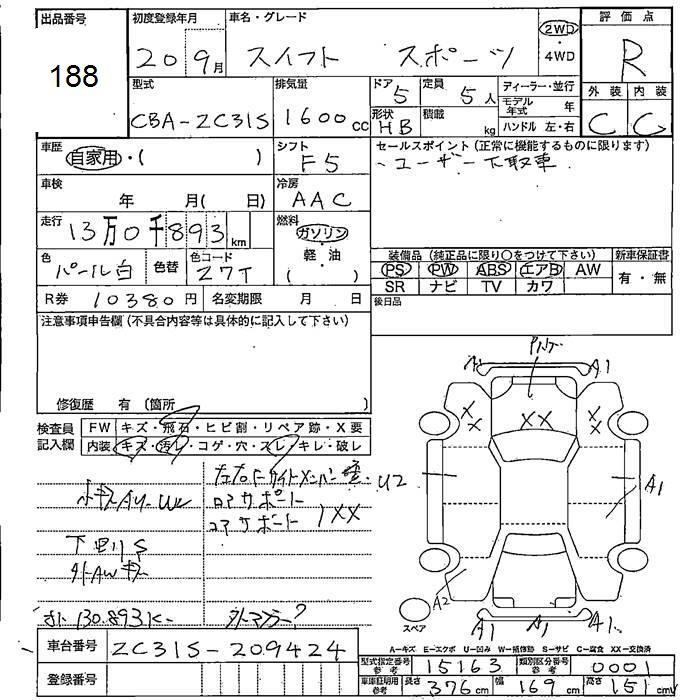 出品番号
188
初度登録年月
20 9月
車名・グレード
スイフト スポーツ
2WD
・
4WD
評価点
R
型式
CBA-ZC31S
排気量
1600cc
ドア
5
定員
5人
形状
HB
積載
kg
ディーラー・並行
モデル年式 年
ハンドル 左・右
外装 内装
C C
車歴
自家用・( )
シフト
F5
セールスポイント(正常に機能するものに限ります)
・ユーザー下取車
車検
年 月( 日)
冷房
AAC
走行
13万0千893km
燃料
ガソリン
・
軽・油
( )
色
パール白
色替
色コード
Z7T
装備品(純正品に限り○をつけて下さい)
PS PW ABS エアB AW
SR ナビ TV カワ
新車保証書
有・無
R券 10380円
名変期限 月 日
後日品
注意事項申告欄(不具合内容等は具体的に記入して下さい)
修復歴 有(箇所 )
検査員記入欄
FW キズ・飛石・ヒビ割・リペア跡・X要
内装 キズ・汚れ・コゲ・穴・スレ・キレ・破レ
コアサポート
1XX
下回りS
外AWキズ
130.893K
外マフラー?
A1
XX
X
X
X
X
U2
A1
A2
A1
A1
A1
スペア
A-キズ E-エクボ U-凹み W-補修跡 S-サビ C-腐食 XX-交換済
車台番号 ZC31S-209424
登録番号
型式指定番号参考 15163
類別区分番号参考 0001
車庫証明用参考 長さ 376cm 幅 169cm 高さ 151cm